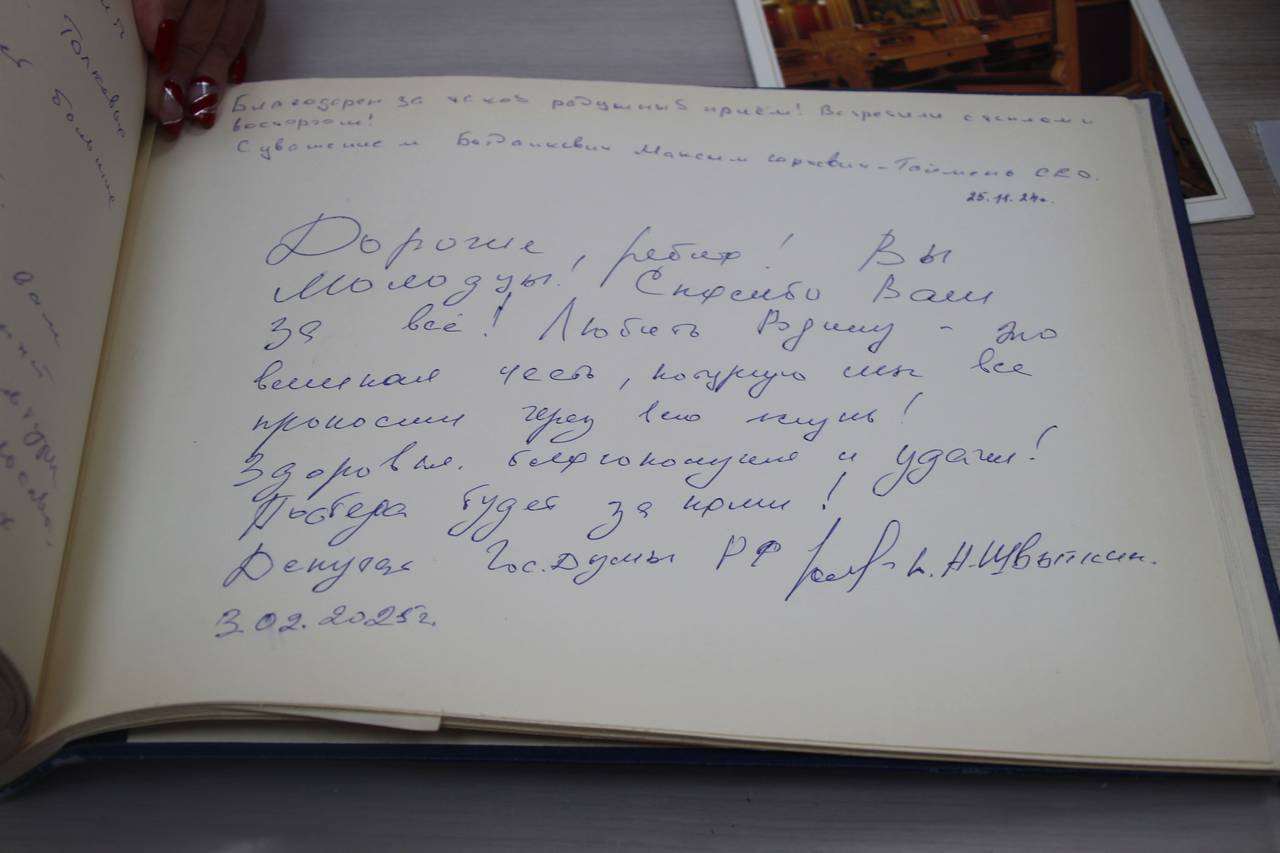 Толковы
больше
вам
Благодарен за такой радушный приём! Встретили с теплом и
восторгом!
С уважением Богданкевич Максим Юрьевич - Таймень СВО.
25.11.24г.
Дорогие, ребята! Вы
молодцы! Спасибо Вам
за всё! Любить Родину - это
великая честь, которую мы все
проносим через всю жизнь!
Здоровья, благополучия и удачи!
Победа будет за нами!
Депутат Гос.Думы РФ Ю.Н.Швыткин.
3.02.2025г.